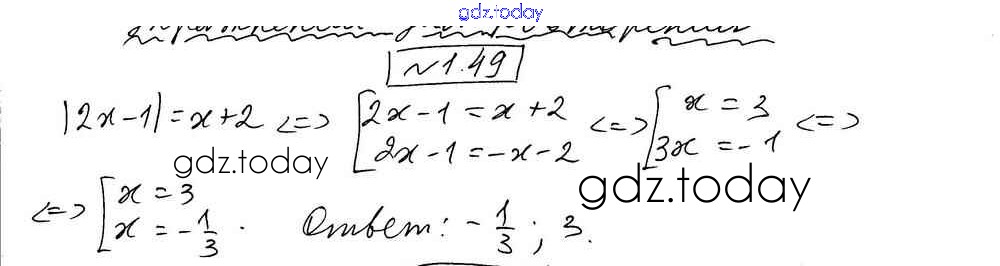 gdz.today
№1.49
|2x-1|=x+2 <=> [2x-1=x+2 <=> [x=3 <=>
2x-1=-x-2 3x=-1
gdz.today
gdz.today
<=> [x=3
x=-1/3. Ответ: -1/3; 3.